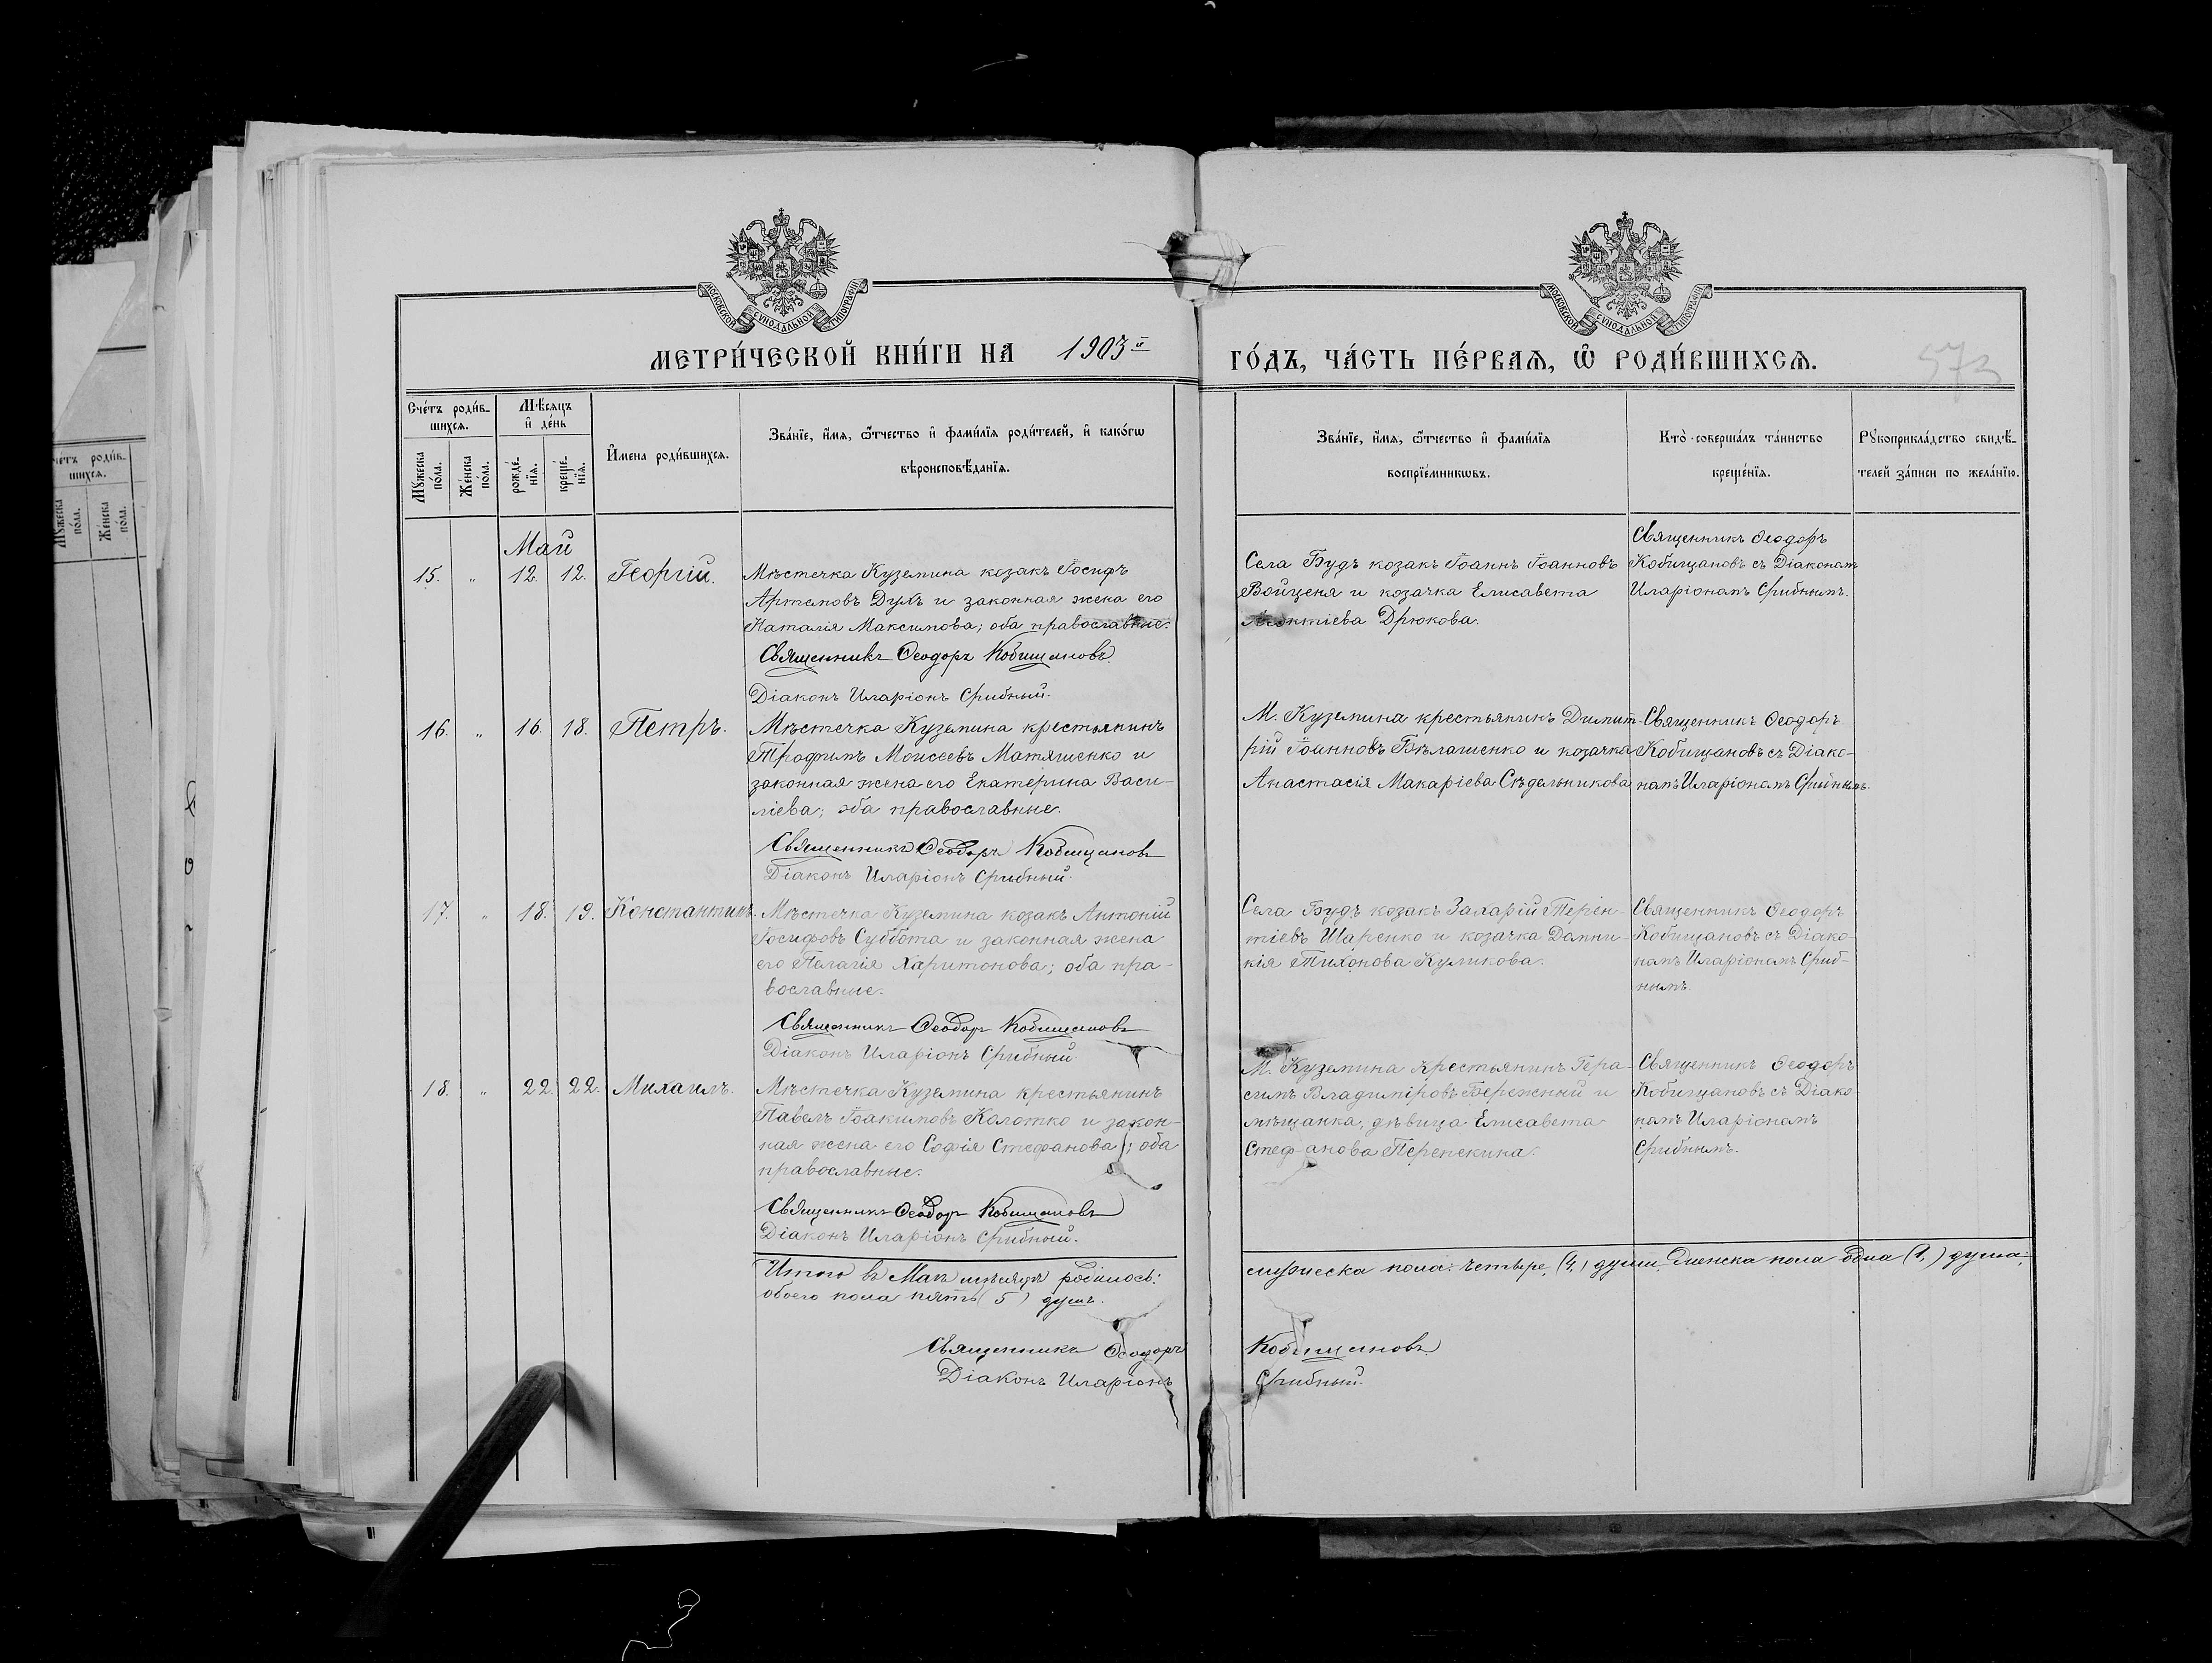 МОСКОВСКОЙ СУНОДАЛЬНОЙ ТИПОГРАФІИ
МОСКОВСКОЙ СУНОДАЛЬНОЙ ТИПОГРАФІИ
МЕТРИ́ЧЕСКОЙ КНИ́ГИ НА 1903й
ГО́ДЪ, ЧА́СТЬ ПЕ́РВАѦ, Ѡ РОДИ́ВШИХСѦ.
573
Сче́тъ роди́в-
шихсѧ.
Мꙋ́жеска по́ла.
Же́нска по́ла.
Мѣ́сѧцъ
и҆ де́нь
рожде́-
нїѧ.
креще́-
нїѧ.
И҆мена роди́вшихсѧ.
Зва́нїе, и҆́мѧ, ѻ҆́тчество и҆ фами́лїѧ роди́телей, и҆ како́гѡ
вѣроисповѣ́данїѧ.
Зва́нїе, и҆́мѧ, ѻ҆́тчество и҆ фами́лїѧ
воспрїе́мникѡвъ.
Кто̀ соверша́лъ та́инство
креще́нїѧ.
Рꙋкоприкла́дство свидѣ́-
телей за́писи по жела́нїю.
четъ роди́в-
шихсѧ.
Мꙋ́жеска по́ла.
Же́нска по́ла.
Май
15. " 12. 12. Георгій.
Мѣстечка Куземина козакъ Іосифъ
Артемовъ Духъ и законная жена его
Наталія Максимова; оба православные.
Священникъ Ѳеодоръ Кобищановъ
Діаконъ Иларіонъ Срибный.
Села Будъ козакъ Іоаннъ Іоанновъ
Войценя и козачка Елисавета
Дрюкова.
Священникъ Ѳеодоръ
Кобищановъ съ Діакономъ
Иларіономъ Срибнымъ.
16. " 16. 18. Петръ.
Мѣстечка Куземина крестьянинъ
Трофимъ Моисеевъ Матяшенко и
законная жена его Екатерина Васи-
ліева; оба православные.
Священникъ Ѳеодоръ Кобищановъ
Діаконъ Иларіонъ Срибный.
М. Куземина крестьянинъ Димит-
рій Іоанновъ Бѣлашенко и козачка
Анастасія Макаріева Сѣдельникова
Священникъ Ѳеодоръ
Кобищановъ съ Діако-
номъ Иларіономъ Срибнымъ.
17. " 18. 19. Константинъ.
Мѣстечка Куземина козакъ Антоній
Іосифовъ Суббота и законная жена
его Пелагія Харитонова; оба пра-
вославные.
Священникъ Ѳеодоръ Кобищановъ
Діаконъ Иларіонъ Срибный.
Села Будъ козакъ Захарій Терен-
тіевъ Шаренко и козачка Домни-
кія Тихонова Куликова.
Священникъ Ѳеодоръ
Кобищановъ съ Діако-
номъ Иларіономъ Сриб-
нымъ.
18. " 22. 22. Михаилъ.
Мѣстечка Куземина крестьянинъ
Павелъ Іоакимовъ Колотко и закон-
ная жена его Софія Стефанова; оба
православные.
Священникъ Ѳеодоръ Кобищановъ
Діаконъ Иларіонъ Срибный.
М. Куземина крестьянинъ Гера-
симъ Владиміровъ Бережный и
мѣщанка, дѣвица Елисавета
Стефанова Перепекина.
Священникъ Ѳеодоръ
Кобищановъ съ Діако-
номъ Иларіономъ
Срибнымъ.
Итого въ Маѣ мѣсяцѣ родилось:
мужеска пола: четыре (4) души, женска пола одна (1) душа;
обоего пола пять (5) душъ.
Священникъ Ѳеодоръ Кобищановъ
Діаконъ Иларіонъ Срибный.